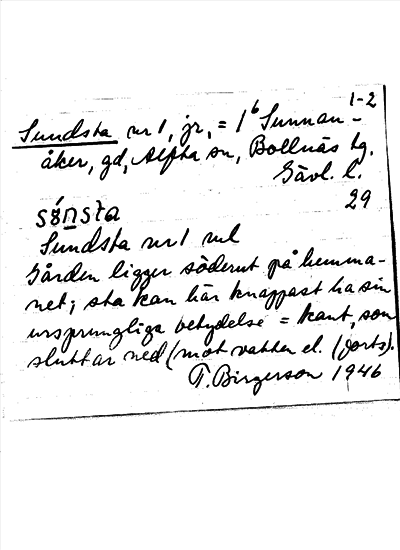 1-2
Sundsta nr 1, jr, = 1⁶ Sunnan-
åker, gd, Alfta sn, Bollnäs tg.
Gävl. l.
29
Sundsta nr 1 ml
Gården ligger söderut på hemma-
net; sta kan här knappast ha sin
ursprungliga betydelse = kant, som
sluttar ned (mot vatten el. (forts).
T. Birgerson 1946